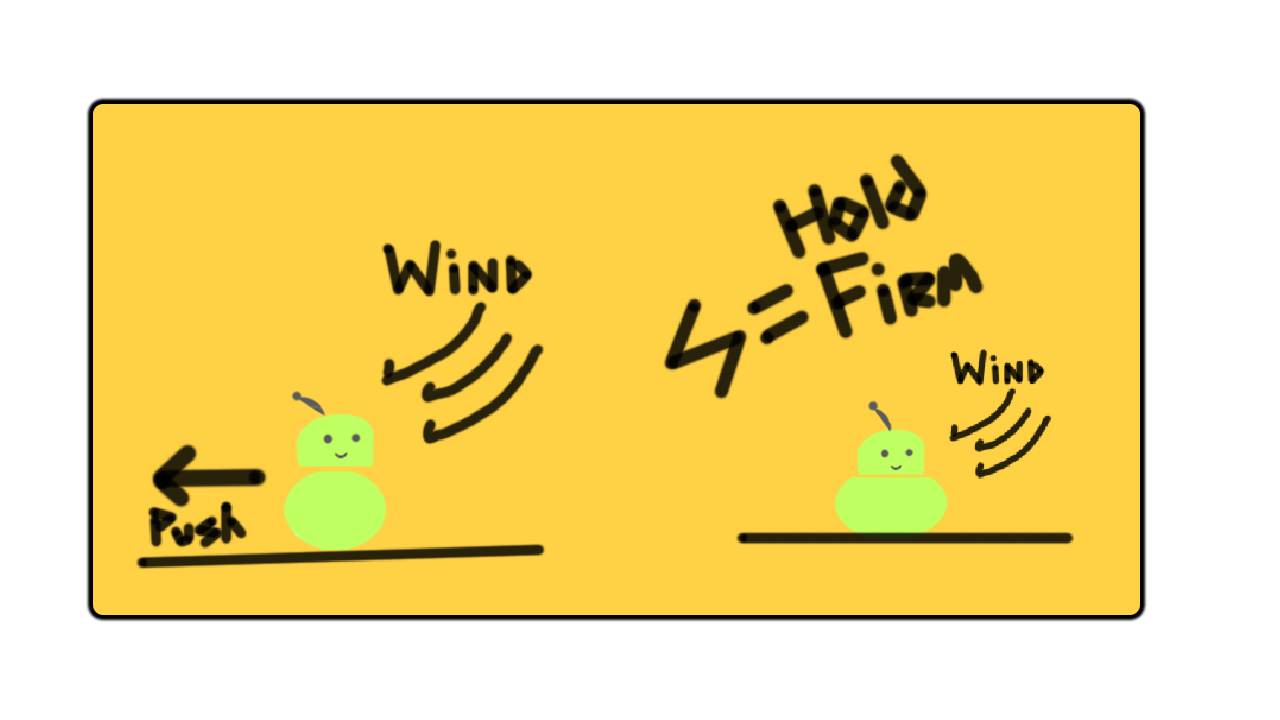 WiND
Push
Hold
S = FiRM
WiND